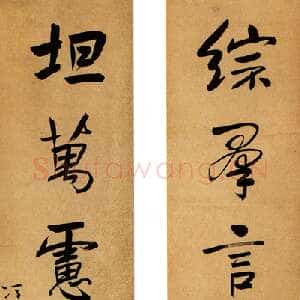 綜羣言
坦萬慮
Shufawang.CN